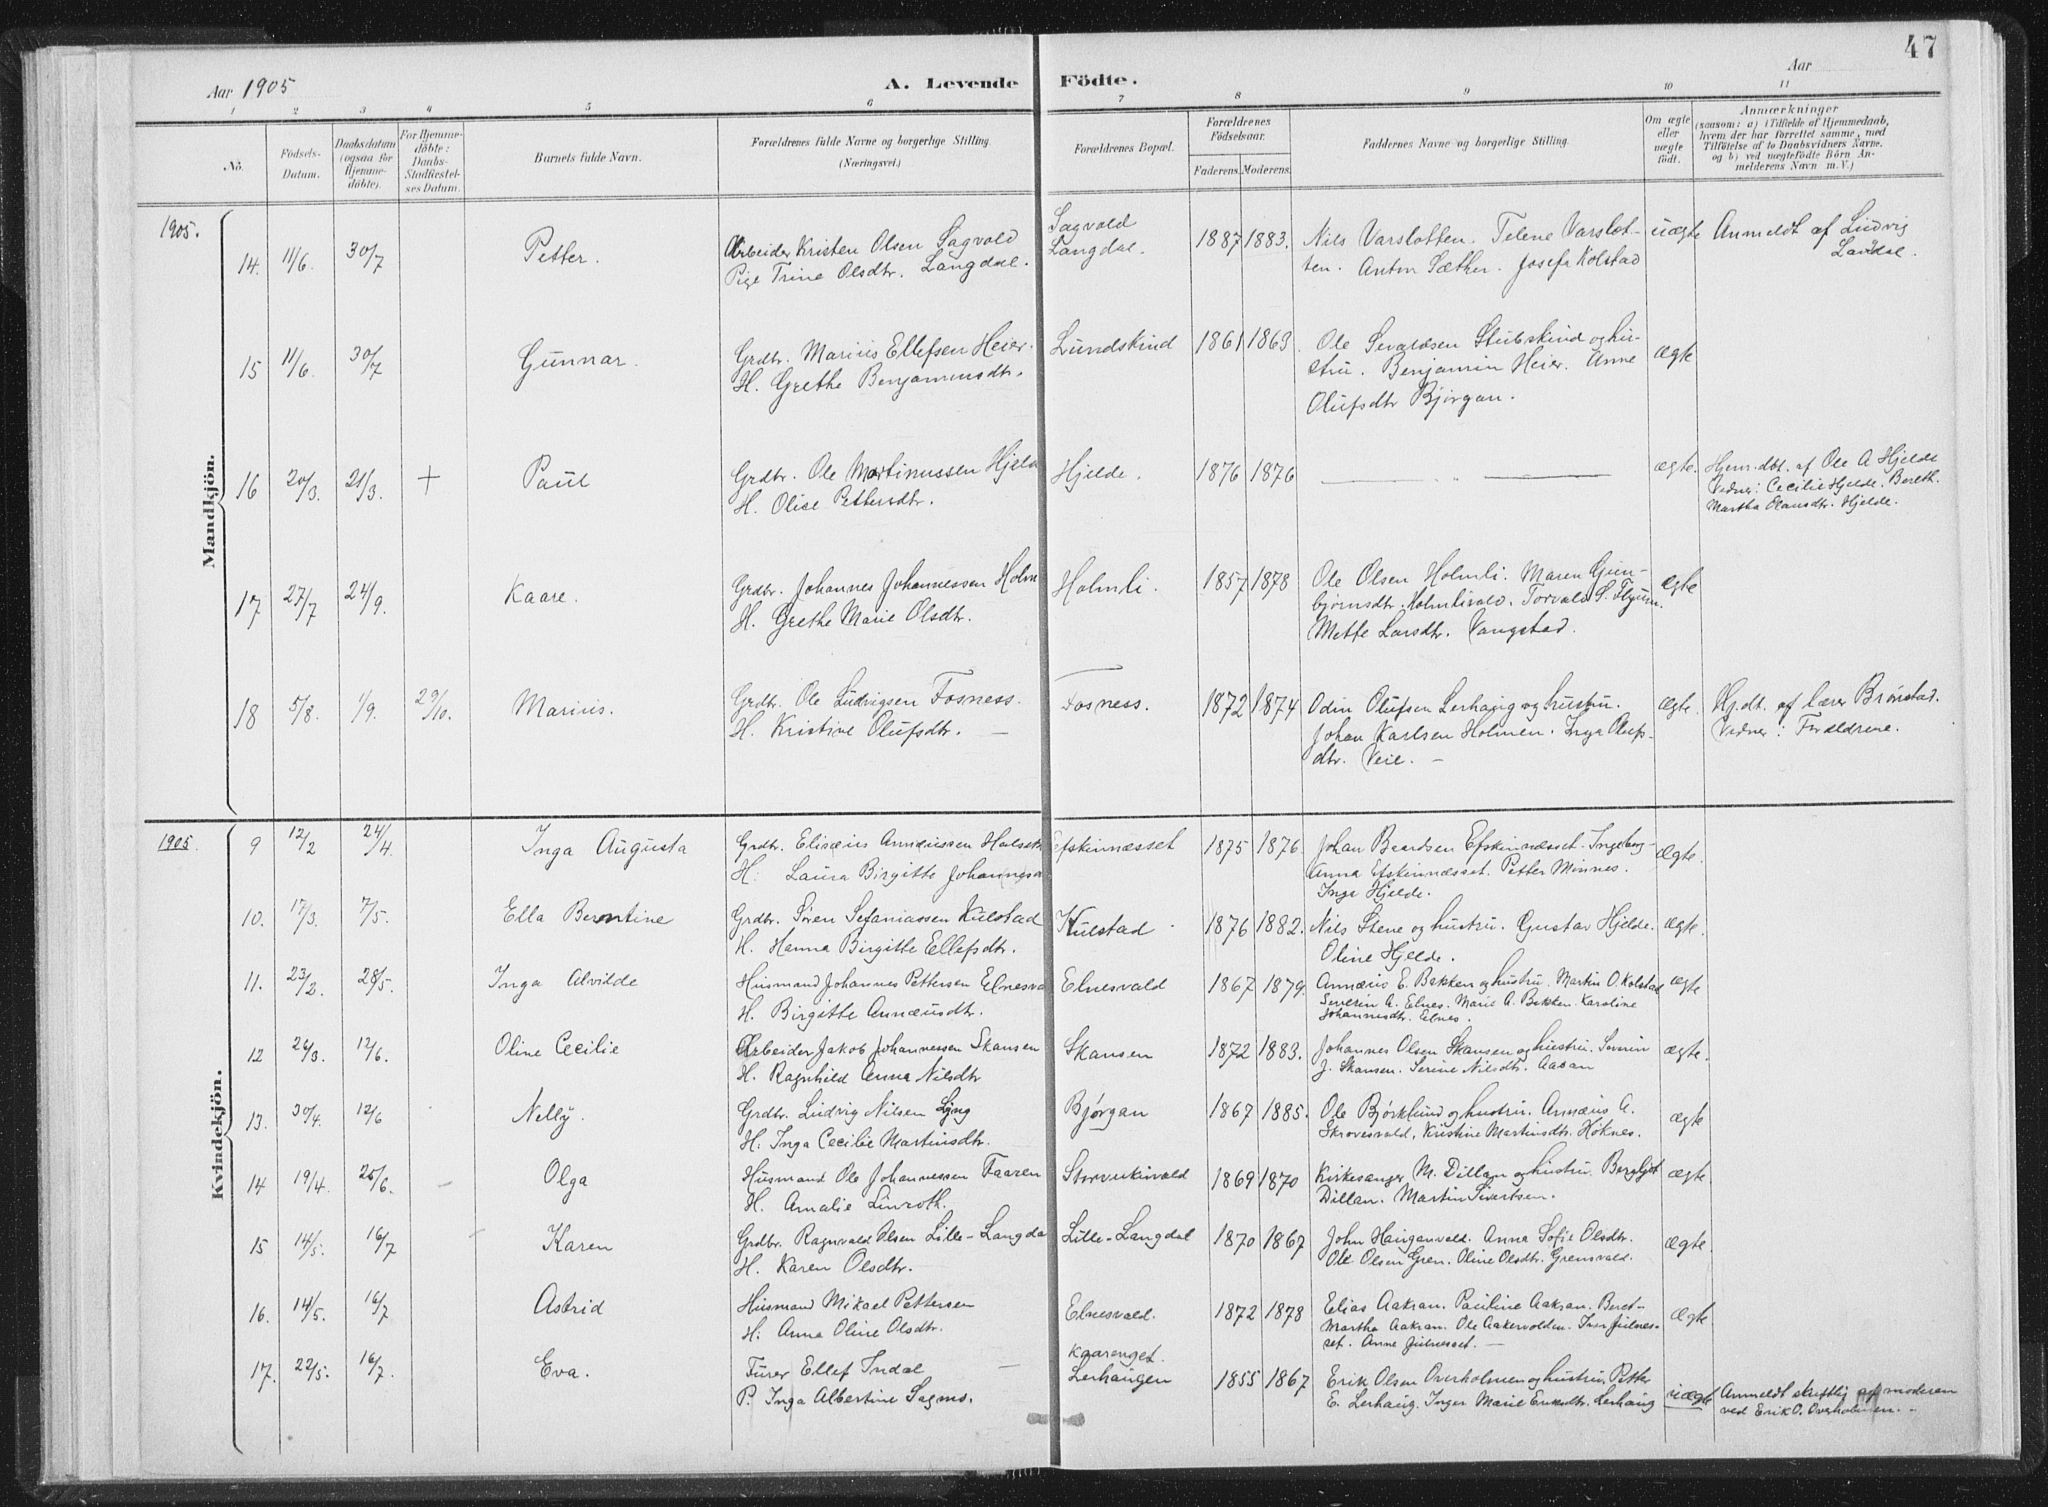 47
Aar 1905
A. Levende Födte.
Aar
1 2 3 4 5 6 7 8 9 10 11
No.
Födsels-Datum.
Daabsdatum (ogsaa for Hjemmedöbte).
For Hjemmedöbte: Daabs-Stadfæstelses Datum.
Barnets fulde Navn.
Forældrenes fulde Navne og borgerlige Stilling (Næringsvei.)
Forældrenes Bopæl.
Forældrenes Födselsaar.
Faderens. Moderens.
Faddernes Navne og borgerlige Stilling.
Om ægte eller uægte födt.
Anmærkninger
(saasom: a) i Tilfælde af Hjemmedaab, hvem der har forrettet samme, med Tilföielse af to Daabsvidners Navne, og b) ved uægtefödte Börn Anmelderens Navn m. V.)
1905.
Mandkjön.
14. 11/6. 30/7 Petter. Arbeider Kristen Olsen Sagvold
Pige Trine Olsdtr. Langdal.
Sagvold
Langdal.
1887 1883. Nils Varslotten. Telene Varslot-
ten. Anton Sæther. Josefa Kolstad
uægte Anmeldt af Ludvig
Landal.
15 11/6. 30/7 Gunnar. Grdbr. Marius Ellefsen Heier.
H. Grethe Benjaminsdtr.
Lundskind 1861 1863. Ole Sevaldsen Stubskind og hu-
stru. Benjamin Heier. Anne
Olufsdtr Bjørgan.
ægte
16 20/3. 21/3. + Paul Grdbr. Ole Martinussen Hjelde
H. Olise Pettersdtr.
Hjelde. 1876 1876 — " —
ægte. Hjem.dbt. af Ole A Hjelde
Vidner: Cecilie Hjelde. Bereth.
Martha Olausdtr. Hjelde.
17 27/7 24/9. Kaare. Grdbr. Johannes Johannessen Holm
H. Grethe Marie Olsdtr.
Holmli. 1857 1878 Ole Olsen Holmli. Maren Gun-
bjørnsdtr. Holmlivald. Torvald S. Flyum.
Mette Larsdtr. Vangstad.
ægte
18 5/8. 1/9. 29/10. Marius. Grdbr. Ole Ludvigsen Fosness.
H. Kristine Olufsdtr. —
Fosness. 1872 1874 Odin Olufsen Lerhaug og hustru.
Johan Karlsen Holmen. Inga Olufs-
dtr. Veie. —
ægte. Hj.dt. af lærer Brønstad.
Vidner: Forældrene.
1905.
Kvindekjön.
9 12/2 24/4. Inga Augusta Grdbr. Elisæus Annæussen Halseth
H. Laura Birgitte Johannesd
Efskinnæsset 1875 1876. Johan Baardsen Efskinnæsset. Ingeborg-
Anna Efskinnæsset. Petter Minnes.
Inga Hjelde.
Ægte.
10. 17/3. 7/5. Ella Berntine Grdbr. Søren Sefaniassen Kulstad
H. Hanna Birgitte Ellefsdtr.
Kulstad 1876 1882. Nils Stene og hustru. Gustav Hjelde.
Oline Hjelde.
ægte.
11. 23/2. 28/5. Inga Alvilde Husmand Johannes Pettersen Elnesva
H. Birgitte Annæusdtr.
Elnesvald 1867 1879. Annæus E. Bekken og hustru. Martin O. Kolstad
Severin A. Elnes. Marie A. Bekken Karoline
Johannesdtr. Elnes.
ægte
12 26/3. 12/6. Oline Cecilie Arbeider Jakob Johannessen Skansen
H. Ragnhild Anna Nilsdtr
Skansen 1872 1883. Johannes Olsen Skansen og hustru. Severin
J. Skansen. Serine Nilsdtr. Aasan
ægte.
13. 30/4. 12/6 Nelly. Grdbr. Ludvig Nilsen Lyng
H. Inga Cecilie Martinsdtr.
Bjørgan 1867 1885. Ole Bjørklund og hustru. Annæus A.
Skrovesvald, Kristine Martinsdtr. Høknes.
ægte
14 19/4. 25/6. Olga Husmand Ole Johannessen Faaren
H. Amalie Linroth.
1869 1870 Kirkesanger M. Dillan og hustru. Bergljot
Dillan. Martin Sivertsen.
ægte.
15 14/5. 16/7 Karen Grdbr. Ragnvald Olsen Lille-Langda
H. Karen Olsdtr.
Lille-Langdal 1870 1867 John Hauganvald. Anna Sofie Olsdtr.
Ole Olsen Gren. Oline Olsdtr. Grensvald.
ægte.
16. 14/5. 16/7 Astrid Husmand Mikael Pettersen
H. Anna Oline Olsdtr.
Elnesvald. 1872 1878 Elias Aakran. Pauline Aakran. Beret-
Martha Aakran. Ole Aakervolden. Iver Julnes-
set. Anne Julnesset. —
Ægte
17. 22/5. 16/7. Eva. Furer Ellef Indal —
P. Inga Albertine Sagmo.
Kaarenget.
Lerhaugen
1855 1867 Erik Olsen Overholmen og hustru. Petter
E. Lerhaug. Inger Marie Eriksdtr. Lerhaug
uægte Anmeldt skriftlig af moderen
ved Erik O. Overholmen. —